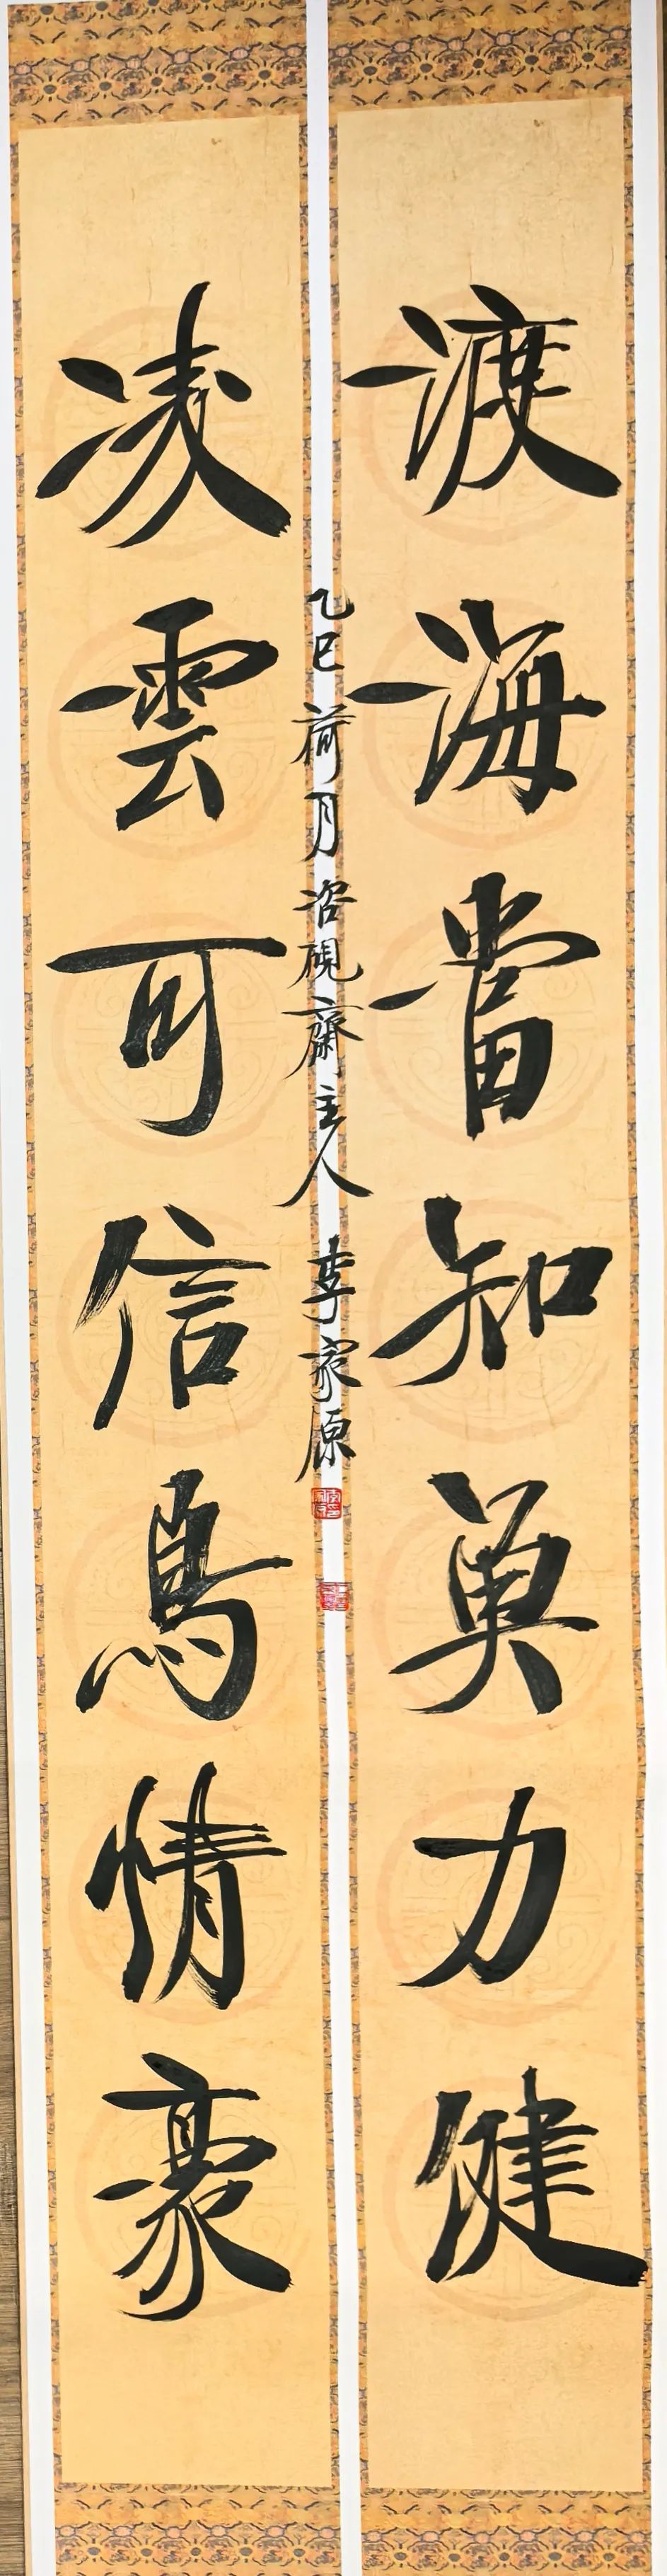 渡海當知負力健
凌雲可信馬情豪
乙巳荷月 硯齋主人 李家原